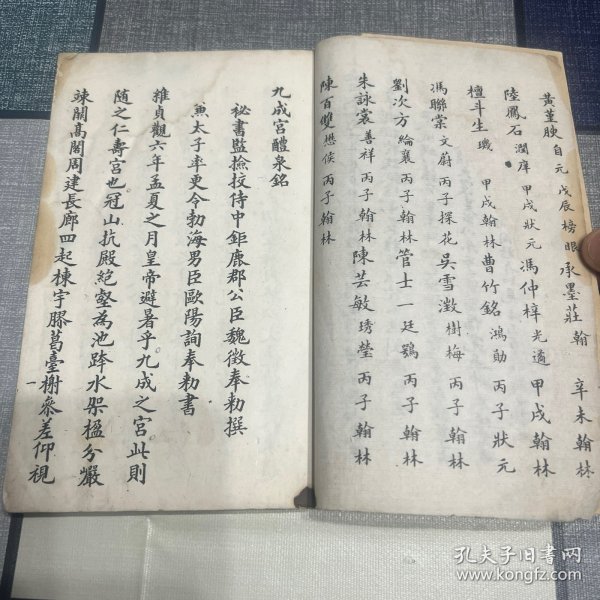 黃堇腴 自元 戊辰榜眼 承墨莊 翰 辛未翰林
陸鳳石 潤庠 甲戌狀元 馮仲梓 光遹 甲戌翰林
檀斗生 璣 甲戌翰林 曹竹銘 鴻勛 丙子狀元
馮聯棠 文蔚 丙子探花 吳雪澂 樹梅 丙子翰林
劉次方 綸襄 丙子翰林 管士一 廷鶚 丙子翰林
朱詠裳 善祥 丙子翰林 陳芸敏 琇瑩 丙子翰林
陳百雙 懋侯 丙子翰林
九成宮醴泉銘
祕書監撿挍侍中鉅鹿郡公臣魏徵奉勑撰
兼太子率更令勃海男臣歐陽詢奉勑書
維貞觀六年孟夏之月皇帝避暑乎九成之宮此則
隨之仁壽宮也冠山抗殿絕壑為池跨水架楹分巖
竦闕高閣周建長廊四起棟宇膠葛臺榭參差仰視
一
孔夫子旧书网
www.kongfz.com